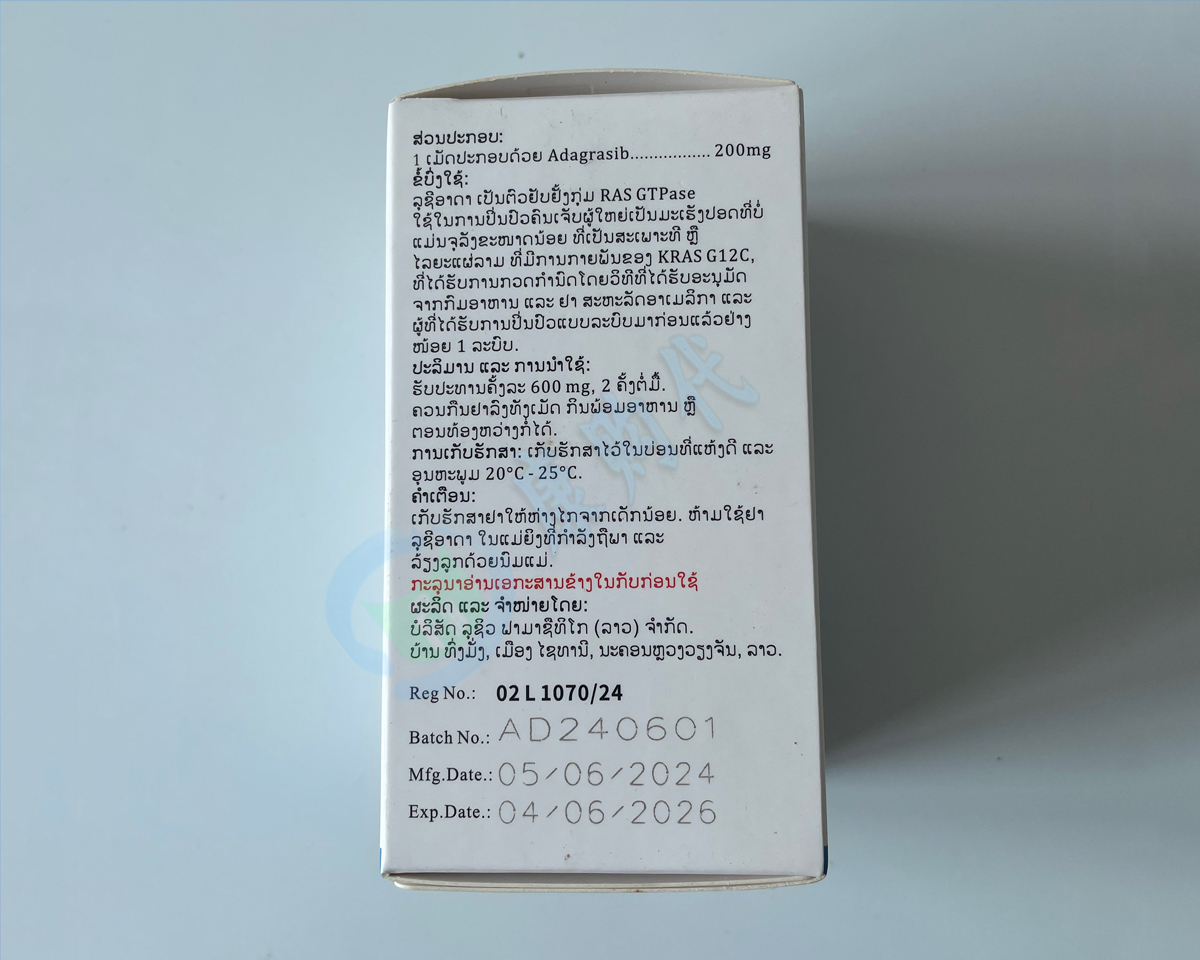 ສ່ວນປະກອບ:
1 ເມັດປະກອບດ້ວຍ Adagrasib................. 200mg
ຂໍ້ບົ່ງໃຊ້:
ລຸຊີອາດາ ເປັນຕົວຢັບຢັ້ງກຸ່ມ RAS GTPase
ໃຊ້ໃນການປິ່ນປົວຄົນເຈັບຜູ້ໃຫຍ່ເປັນມະເຮັງປອດທີ່ບໍ່
ແມ່ນຈຸລັງຂະໜາດນ້ອຍ ທີ່ເປັນສະເພາະທີ ຫຼື
ໄລຍະແຜ່ລາມ ທີ່ມີການກາຍພັນຂອງ KRAS G12C,
ທີ່ໄດ້ຮັບການກວດກຳນົດໂດຍວິທີທີ່ໄດ້ຮັບອະນຸມັດ
ຈາກກົມອາຫານ ແລະ ຢາ ສະຫະລັດອາເມລິກາ ແລະ
ຜູ້ທີ່ໄດ້ຮັບການປິ່ນປົວແບບລະບົບມາກ່ອນແລ້ວຢ່າງ
ໜ້ອຍ 1 ລະບົບ.
ປະລິມານ ແລະ ການນຳໃຊ້:
ຮັບປະທານຄັ້ງລະ 600 mg, 2 ຄັ້ງຕໍ່ມື້.
ຄວນກືນຢາລົງທັງເມັດ ກິນພ້ອມອາຫານ ຫຼື
ຕອນທ້ອງຫວ່າງກໍ່ໄດ້.
ການເກັບຮັກສາ: ເກັບຮັກສາໄວ້ໃນບ່ອນທີ່ແຫ້ງດີ ແລະ
ອຸນຫະພູມ 20°C - 25°C.
ຄຳເຕືອນ:
ເກັບຮັກສາຢາໃຫ້ຫ່າງໄກຈາກເດັກນ້ອຍ. ຫ້າມໃຊ້ຢາ
ລຸຊີອາດາ ໃນແມ່ຍິງທີ່ກຳລັງຖືພາ ແລະ
ລ້ຽງລູກດ້ວຍນົມແມ່.
ກະລຸນາອ່ານເອກະສານຂ້າງໃນກັບກ່ອນໃຊ້
ຜະລິດ ແລະ ຈຳໜ່າຍໂດຍ:
ບໍລິສັດ ລຸຊິວ ຟາມາຊືທິໂກ (ລາວ) ຈຳກັດ.
ບ້ານ ທົ່ງມັ່ງ, ເມືອງ ໄຊທານີ, ນະຄອນຫຼວງວຽງຈັນ, ລາວ.
Reg No.: 02 L 1070/24
Batch No.: AD240601
Mfg.Date.: 05/06/2024
Exp.Date.: 04/06/2026
康购代